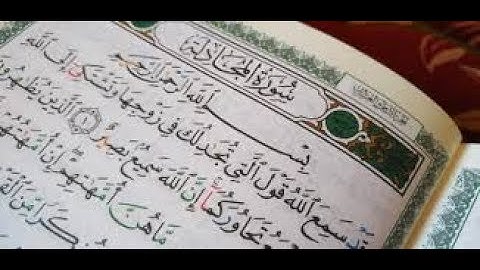 سُورَةُ المُجَادلة
بِسْمِ ٱللَّهِ ٱلرَّحْمَٰنِ ٱلرَّحِيمِ
قَدْ سَمِعَ ٱللَّهُ قَوْلَ ٱلَّتِي تُجَٰدِلُكَ فِي زَوْجِهَا وَتَشْتَكِيٓ إِلَى ٱللَّهِ
تَحَاوُرَكُمَآ إِنَّ ٱللَّهَ سَمِيعٌۢ بَصِيرٌ ١ ٱلَّذِينَ يُظَٰهِرُونَ
مَّا هُنَّ أُمَّهَٰتِهِمْ إِنْ أُمَّهَٰتُهُمْ
مُنكَرًا مِّنَ